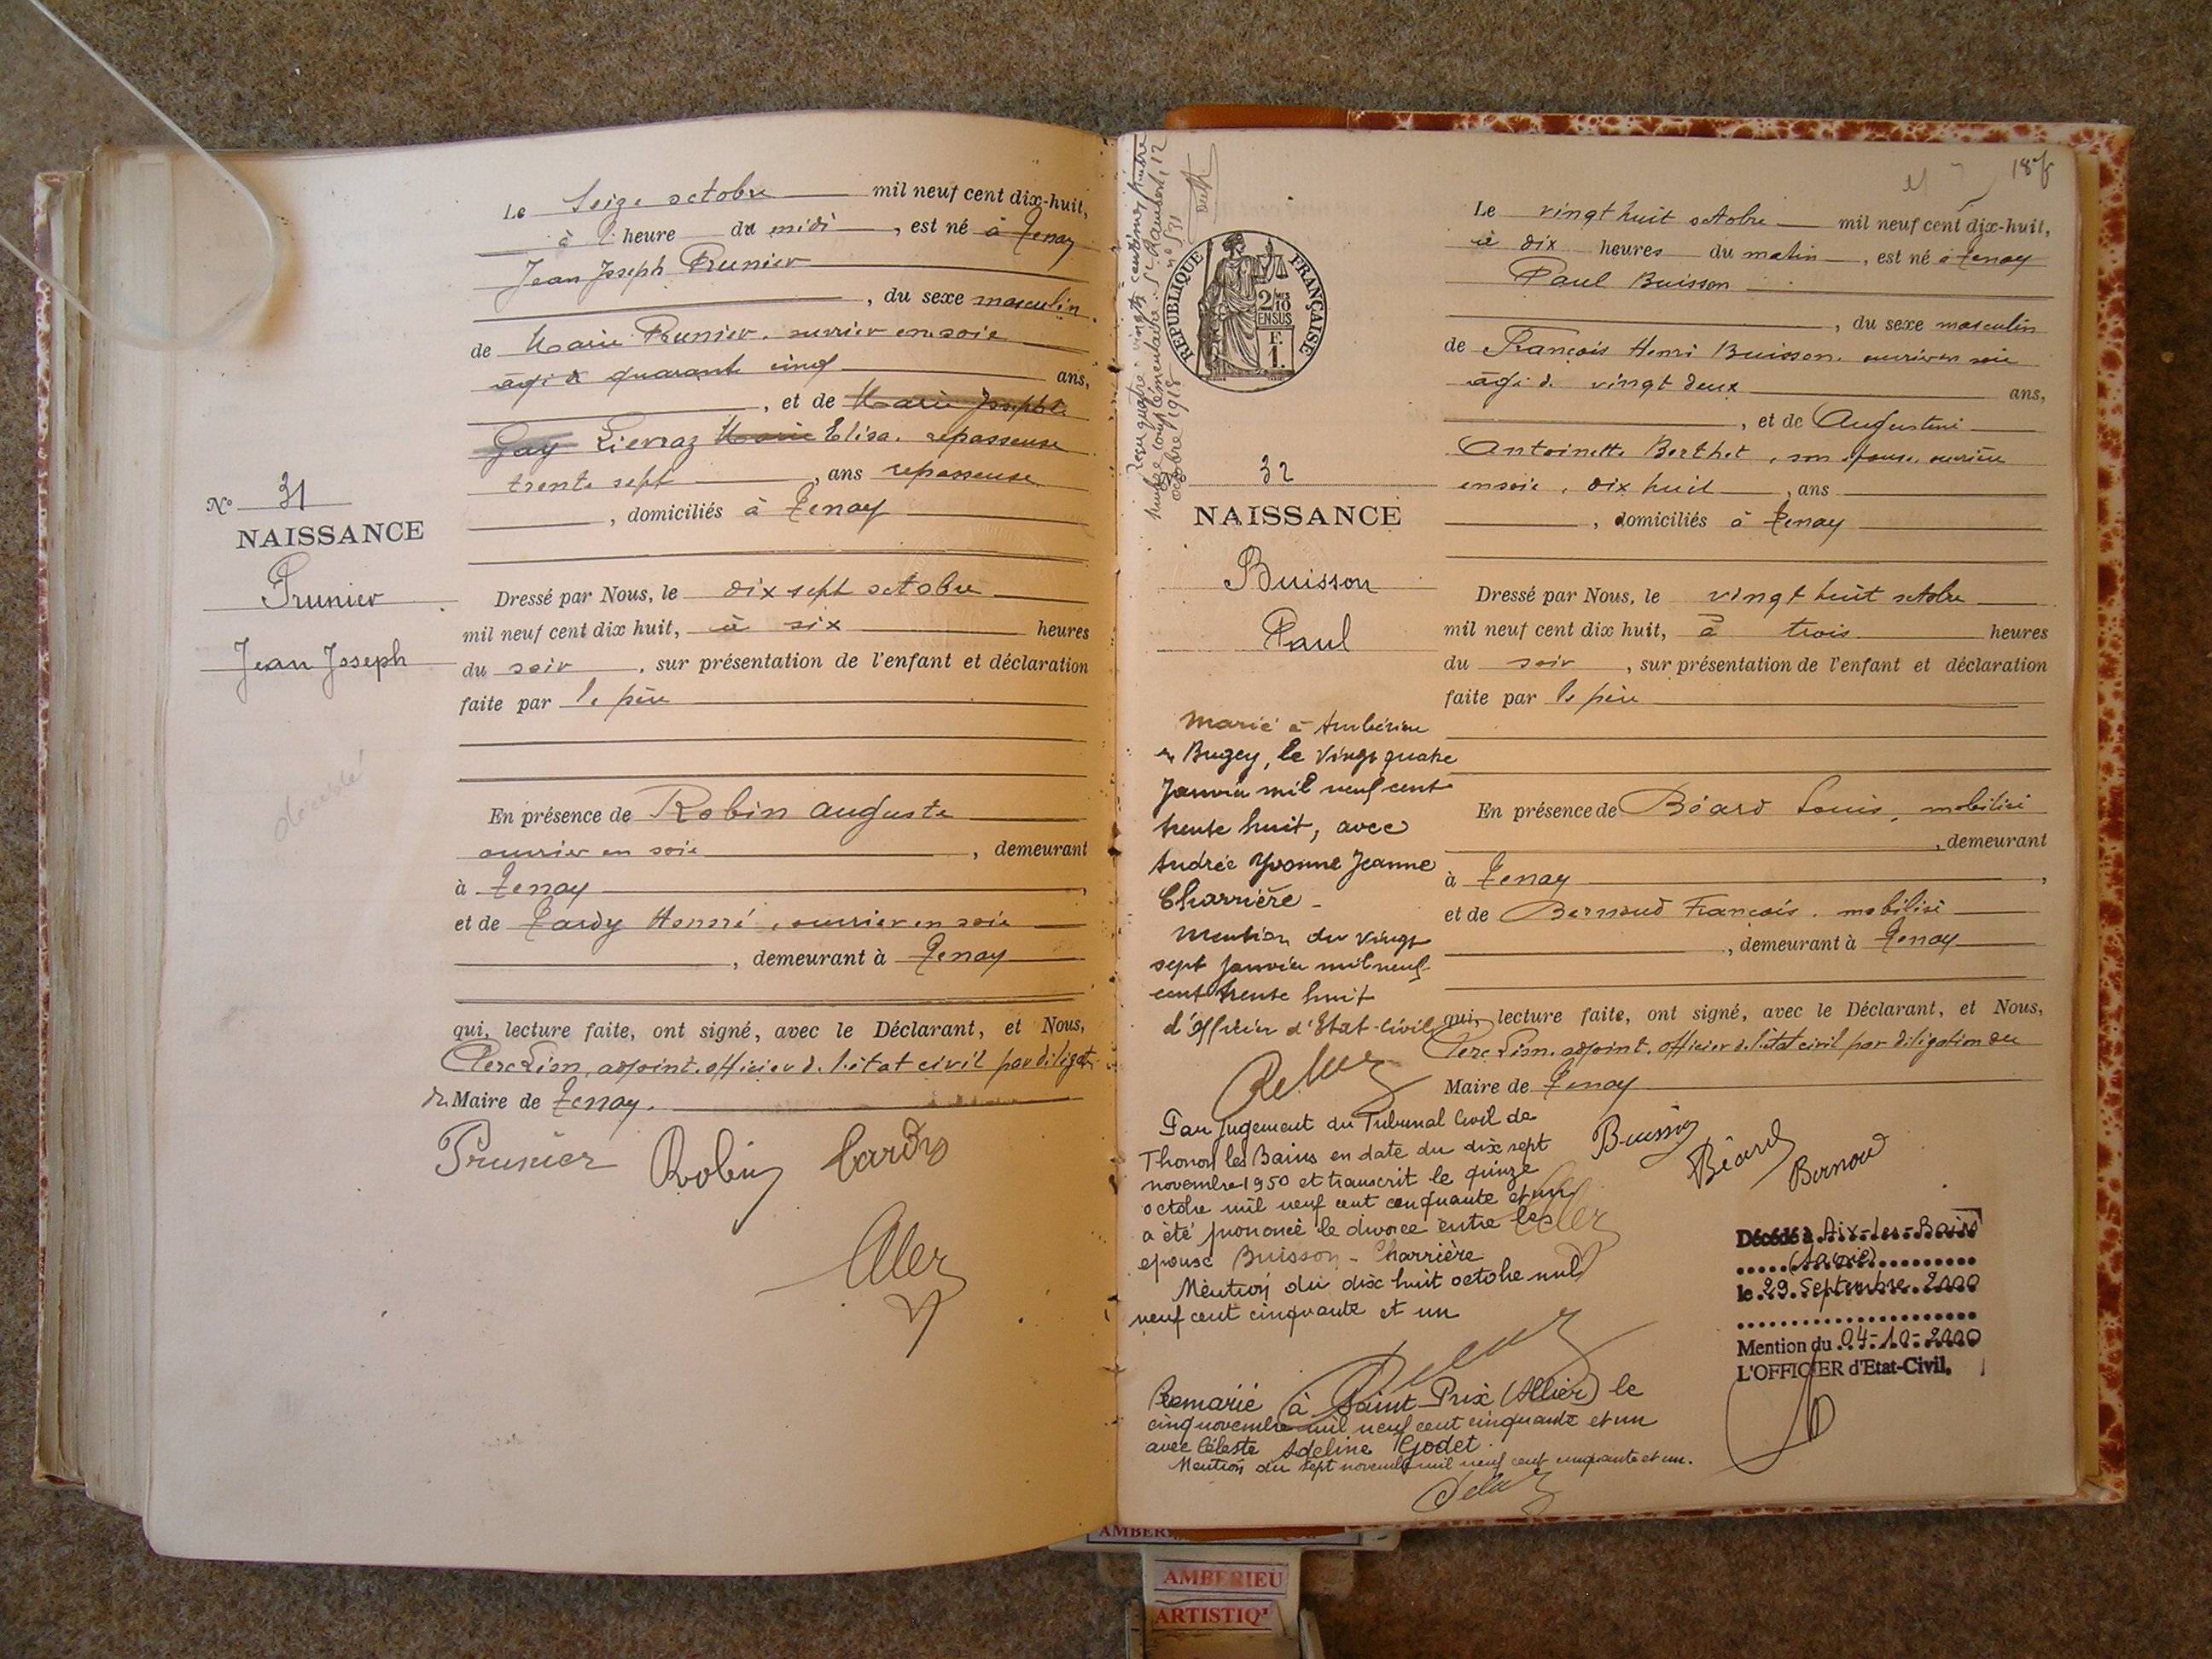 Le seize octobre mil neuf cent dix-huit,
à heure du midi, est né à Tenay
Jean Joseph Prunier
, du sexe masculin
de Marie Prunier, ouvrier en soie
âgé de quarante cinq ans,
, et de Marie Josephte
Gay Liévraz Marie Elisa, repasseuse
trente sept, ans repasseuse
, domiciliés à Tenay
N° 31
NAISSANCE
Prunier
Jean Joseph
décédé
Dressé par Nous, le dix sept octobre
mil neuf cent dix huit, à six heures
du soir, sur présentation de l'enfant et déclaration
faite par le père
En présence de Robin Auguste
ouvrier en soie, demeurant
à Tenay,
et de Tardy, ouvrier en soie
, demeurant à Tenay
qui, lecture faite, ont signé, avec le Déclarant, et Nous,
adjoint, officier de l'état civil par
du Maire de Tenay.
Prunier Robin Tardy
Le vingt huit octobre mil neuf cent dix-huit,
à dix heures du matin, est né à Tenay
Paul Buisson
, du sexe masculin
de François Henri Buisson, ouvrier en soie
âgé de vingt deux ans,
, et de Augustine
Antoinette Berthet, son épouse, ouvrière
en soie, dix huit, ans
, domiciliés à Tenay
RÉPUBLIQUE FRANÇAISE
2/10
EN SUS
F.
1.
32
NAISSANCE
Buisson
Paul
Dressé par Nous, le vingt huit octobre
mil neuf cent dix huit, à trois heures
du soir, sur présentation de l'enfant et déclaration
faite par le père
En présence de Béard Louis, mobilisé
, demeurant
à Tenay,
et de Bernoud François, mobilisé
, demeurant à Tenay
qui, lecture faite, ont signé, avec le Déclarant, et Nous,
adjoint, officier de l'état civil par déligation du
Maire de Tenay
Buisson Béard Bernoud
Marié à Ambérieu
en Bugey, le vingt quatre
Janvier mil neuf cent
trente huit, avec
Andrée Yvonne Jeanne
Charrière -
Mention du vingt
sept Janvier mil neuf
cent trente huit
d'Officier d'Etat-Civil
Par Jugement du Tribunal Civil de
Thonon les Bains en date du dix sept
novembre 1950 et transcrit le quinze
octobre mil neuf cent cinquante et un
a été prononcé le divorce entre les
epoux Buisson - Charrière
Mention du dix huit octobre mil
neuf cent cinquante et un
Remarié à Saint-Prix (Allier) le
cinq novembre mil neuf cent cinquante et un
avec Céleste Adeline Godet.
Mention du sept novembre mil neuf cent cinquante et un.
Décédé à Aix-les-Bains
(Savoie)
le 29 Septembre 2000
Mention du 04-10-2000
L'OFFICIER d'Etat-Civil,
AMBERIEU
ARTISTIQ